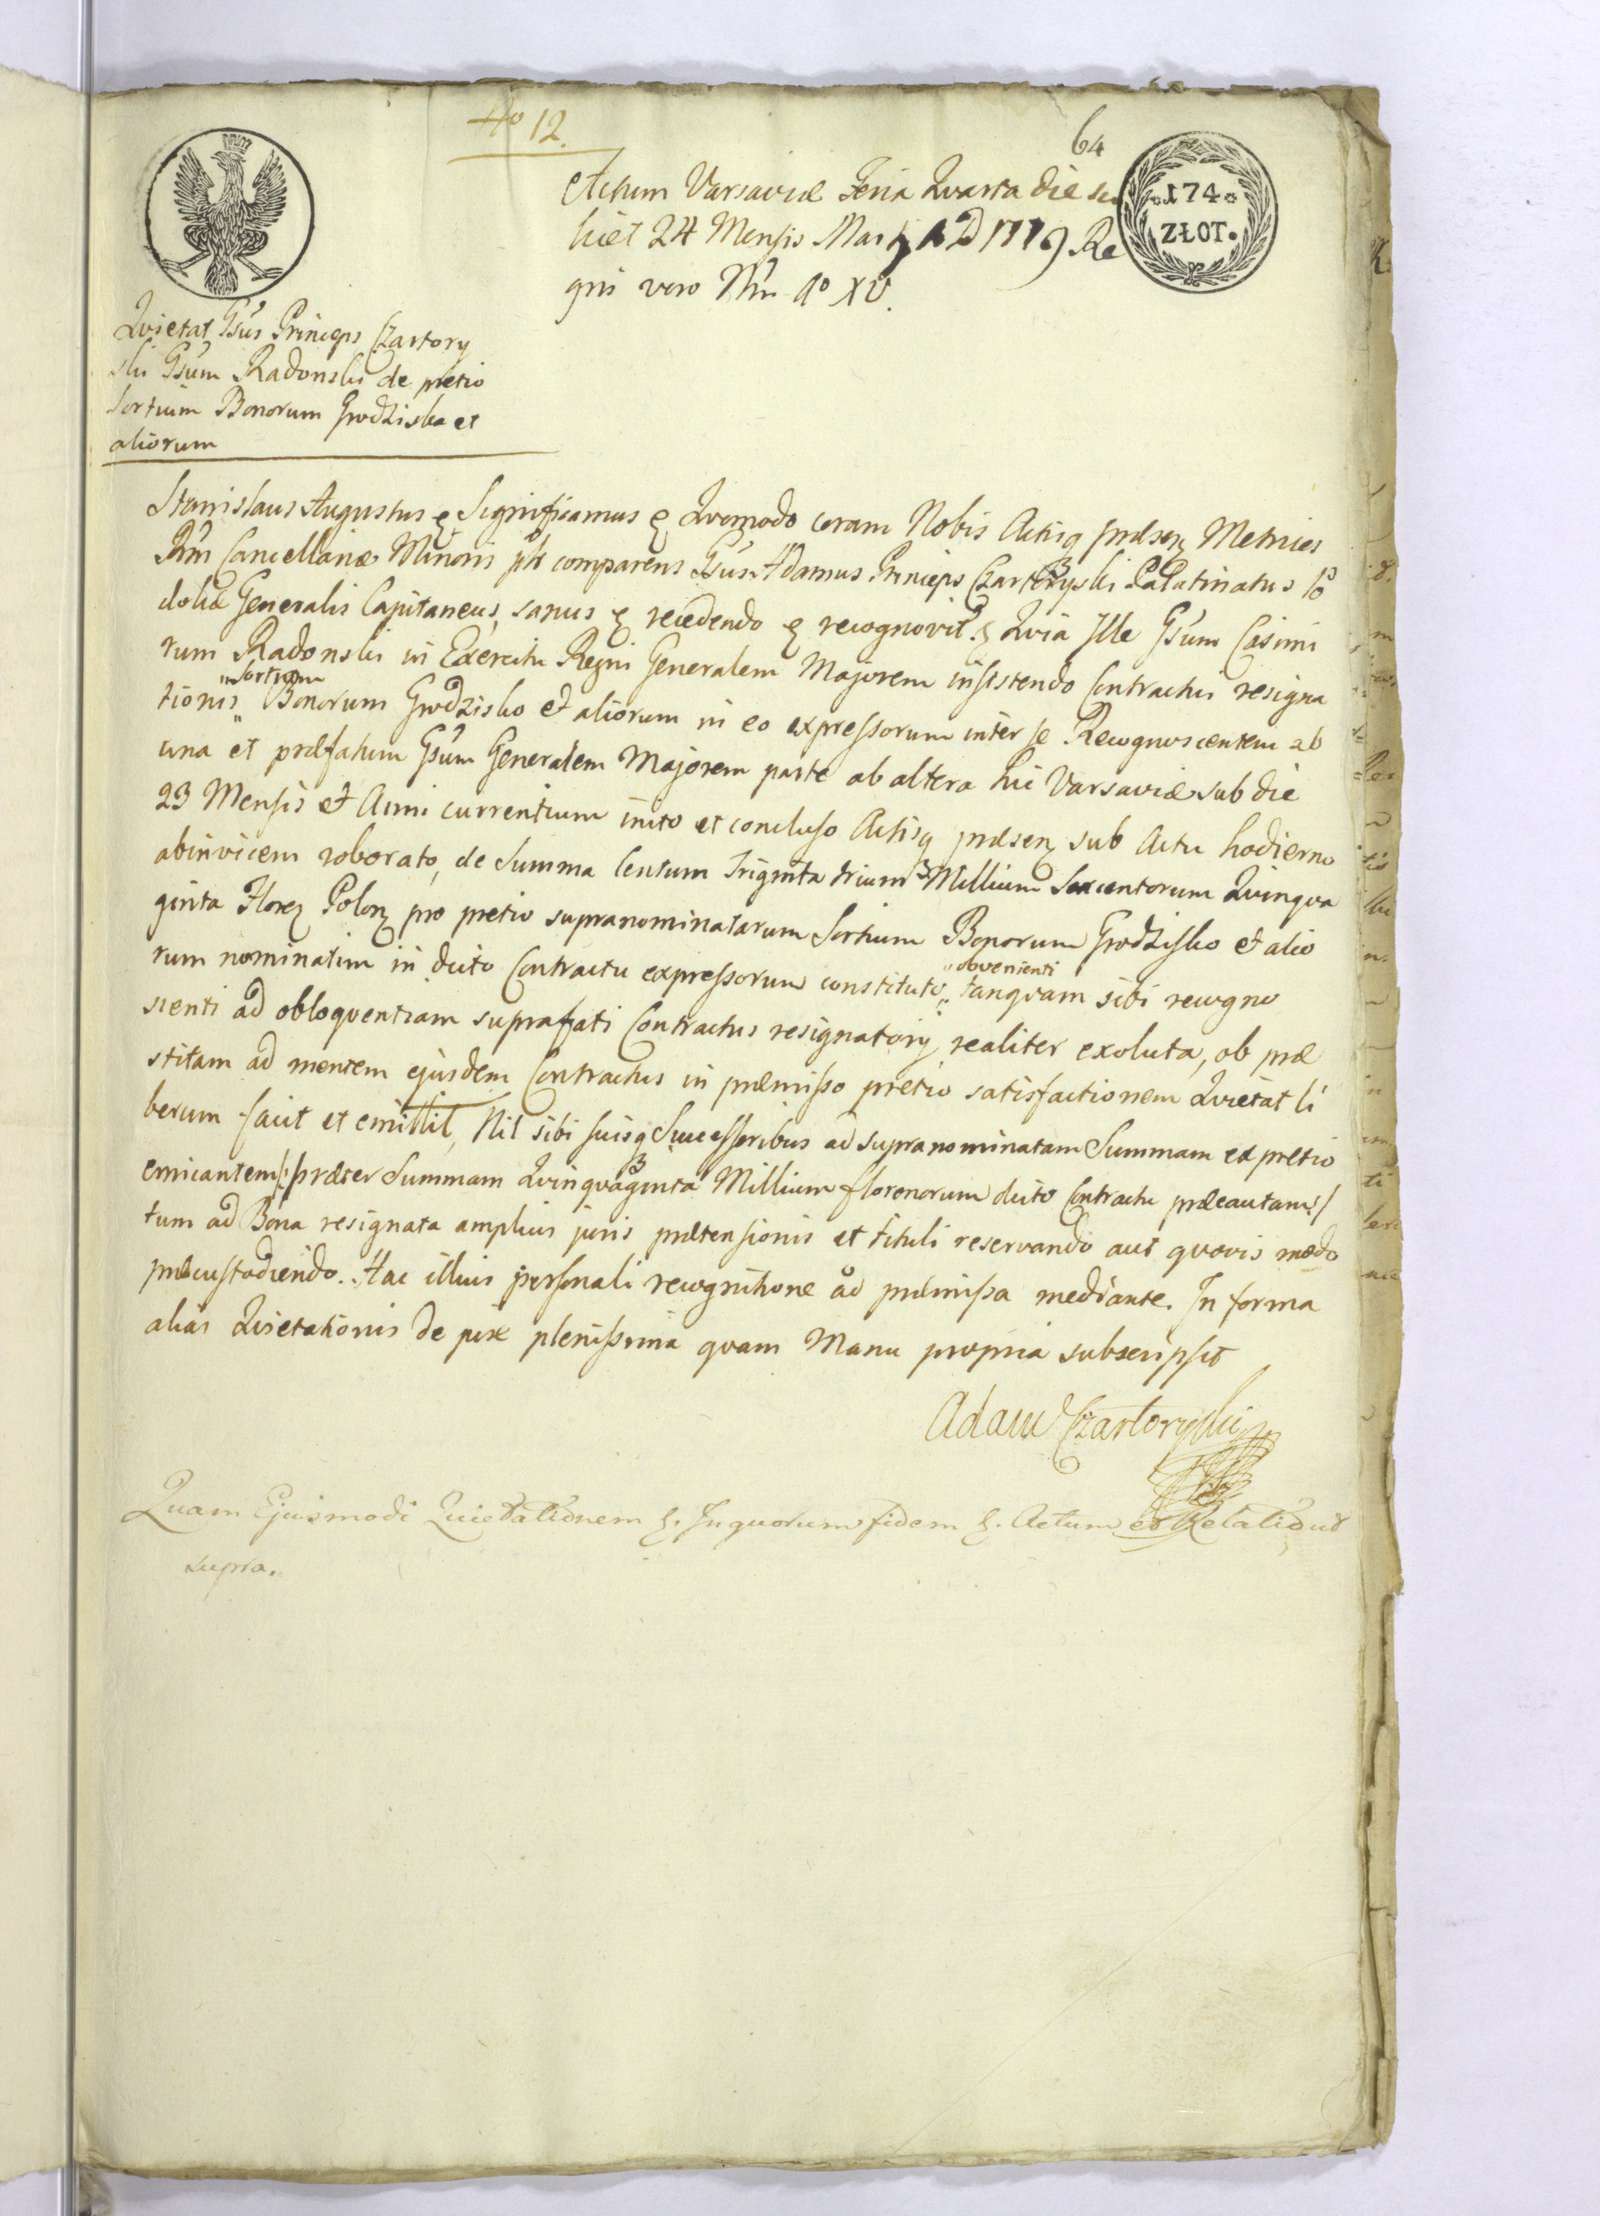 No 12.
64
.174.
ZŁOT.
Actum Varsaviæ Feria Qvarta die sci
licet 24 Mensis Martij A D 1779 Re
gni vero Nri Ao XV.
Qvietat Gsus Princeps Czartory
ski Gsum Radonski de pretio
Sortium Bonorum Grodziska et
aliorum
Stanislaus Augustus & Significamus & Qvomodo coram Nobis Actisq præsen Metrices
Rni Cancellariæ Minoris comparens Gsus Adamus Princeps Czartoryski Palatinatus Po
doliæ Generalis Capitaneus, sanus & recedendo & recognovit & Qvia Ille Gsum Casimi
rum Radonski in Exercitu Regni Generalem Majorem insistendo Contractui resigna
tionis „Sortium„ Bonorum Grodzisko et aliorum in eo expressorum inter se Recognoscentem ab
una et præfatum Gsum Generalem Majorem parte ab altera hic Varsaviæ sub die
23 Mensis et Anni currentium inito et concluso Actisq præsen sub Actu hodierno
abinvicem roborato, de Summa Centum Triginta trium Millium Sexcentorum Qvinqva
ginta Floren Polon pro pretio supranominatarum Sortium Bonorum Grodzisko et alio
rum nominatim in dicto Contractu expressorum constituto „obvenienti„ tanqvam sibi recogno
scenti ad obloqventiam suprafati Contractus resignatorij realiter exoluta, ob præ
stitam ad mentem ejusdem Contractus in præmisso pretio satisfactionem Qvietat li
berum facit et emittit, Nil sibi suisq Successoribus ad supranominatam Summam ex pretio
emicantem /: præter Summam Qvinqvaginta Millium florenorum dicto Contractu præcautam :/
tum ad Bona resignata amplius juris prætensionis et tituli reservando aut qvovis modo
præcustodiendo. Hac illius personali recognitione ad præmissa mediante. In forma
alias Qvietationis de jure plenissima qvam Manu propria subscripsit
Adam Czartoryski
Quam Ejusmodi Quietationem &. In quorum fidem &. Actum et Relatio ut
supra.